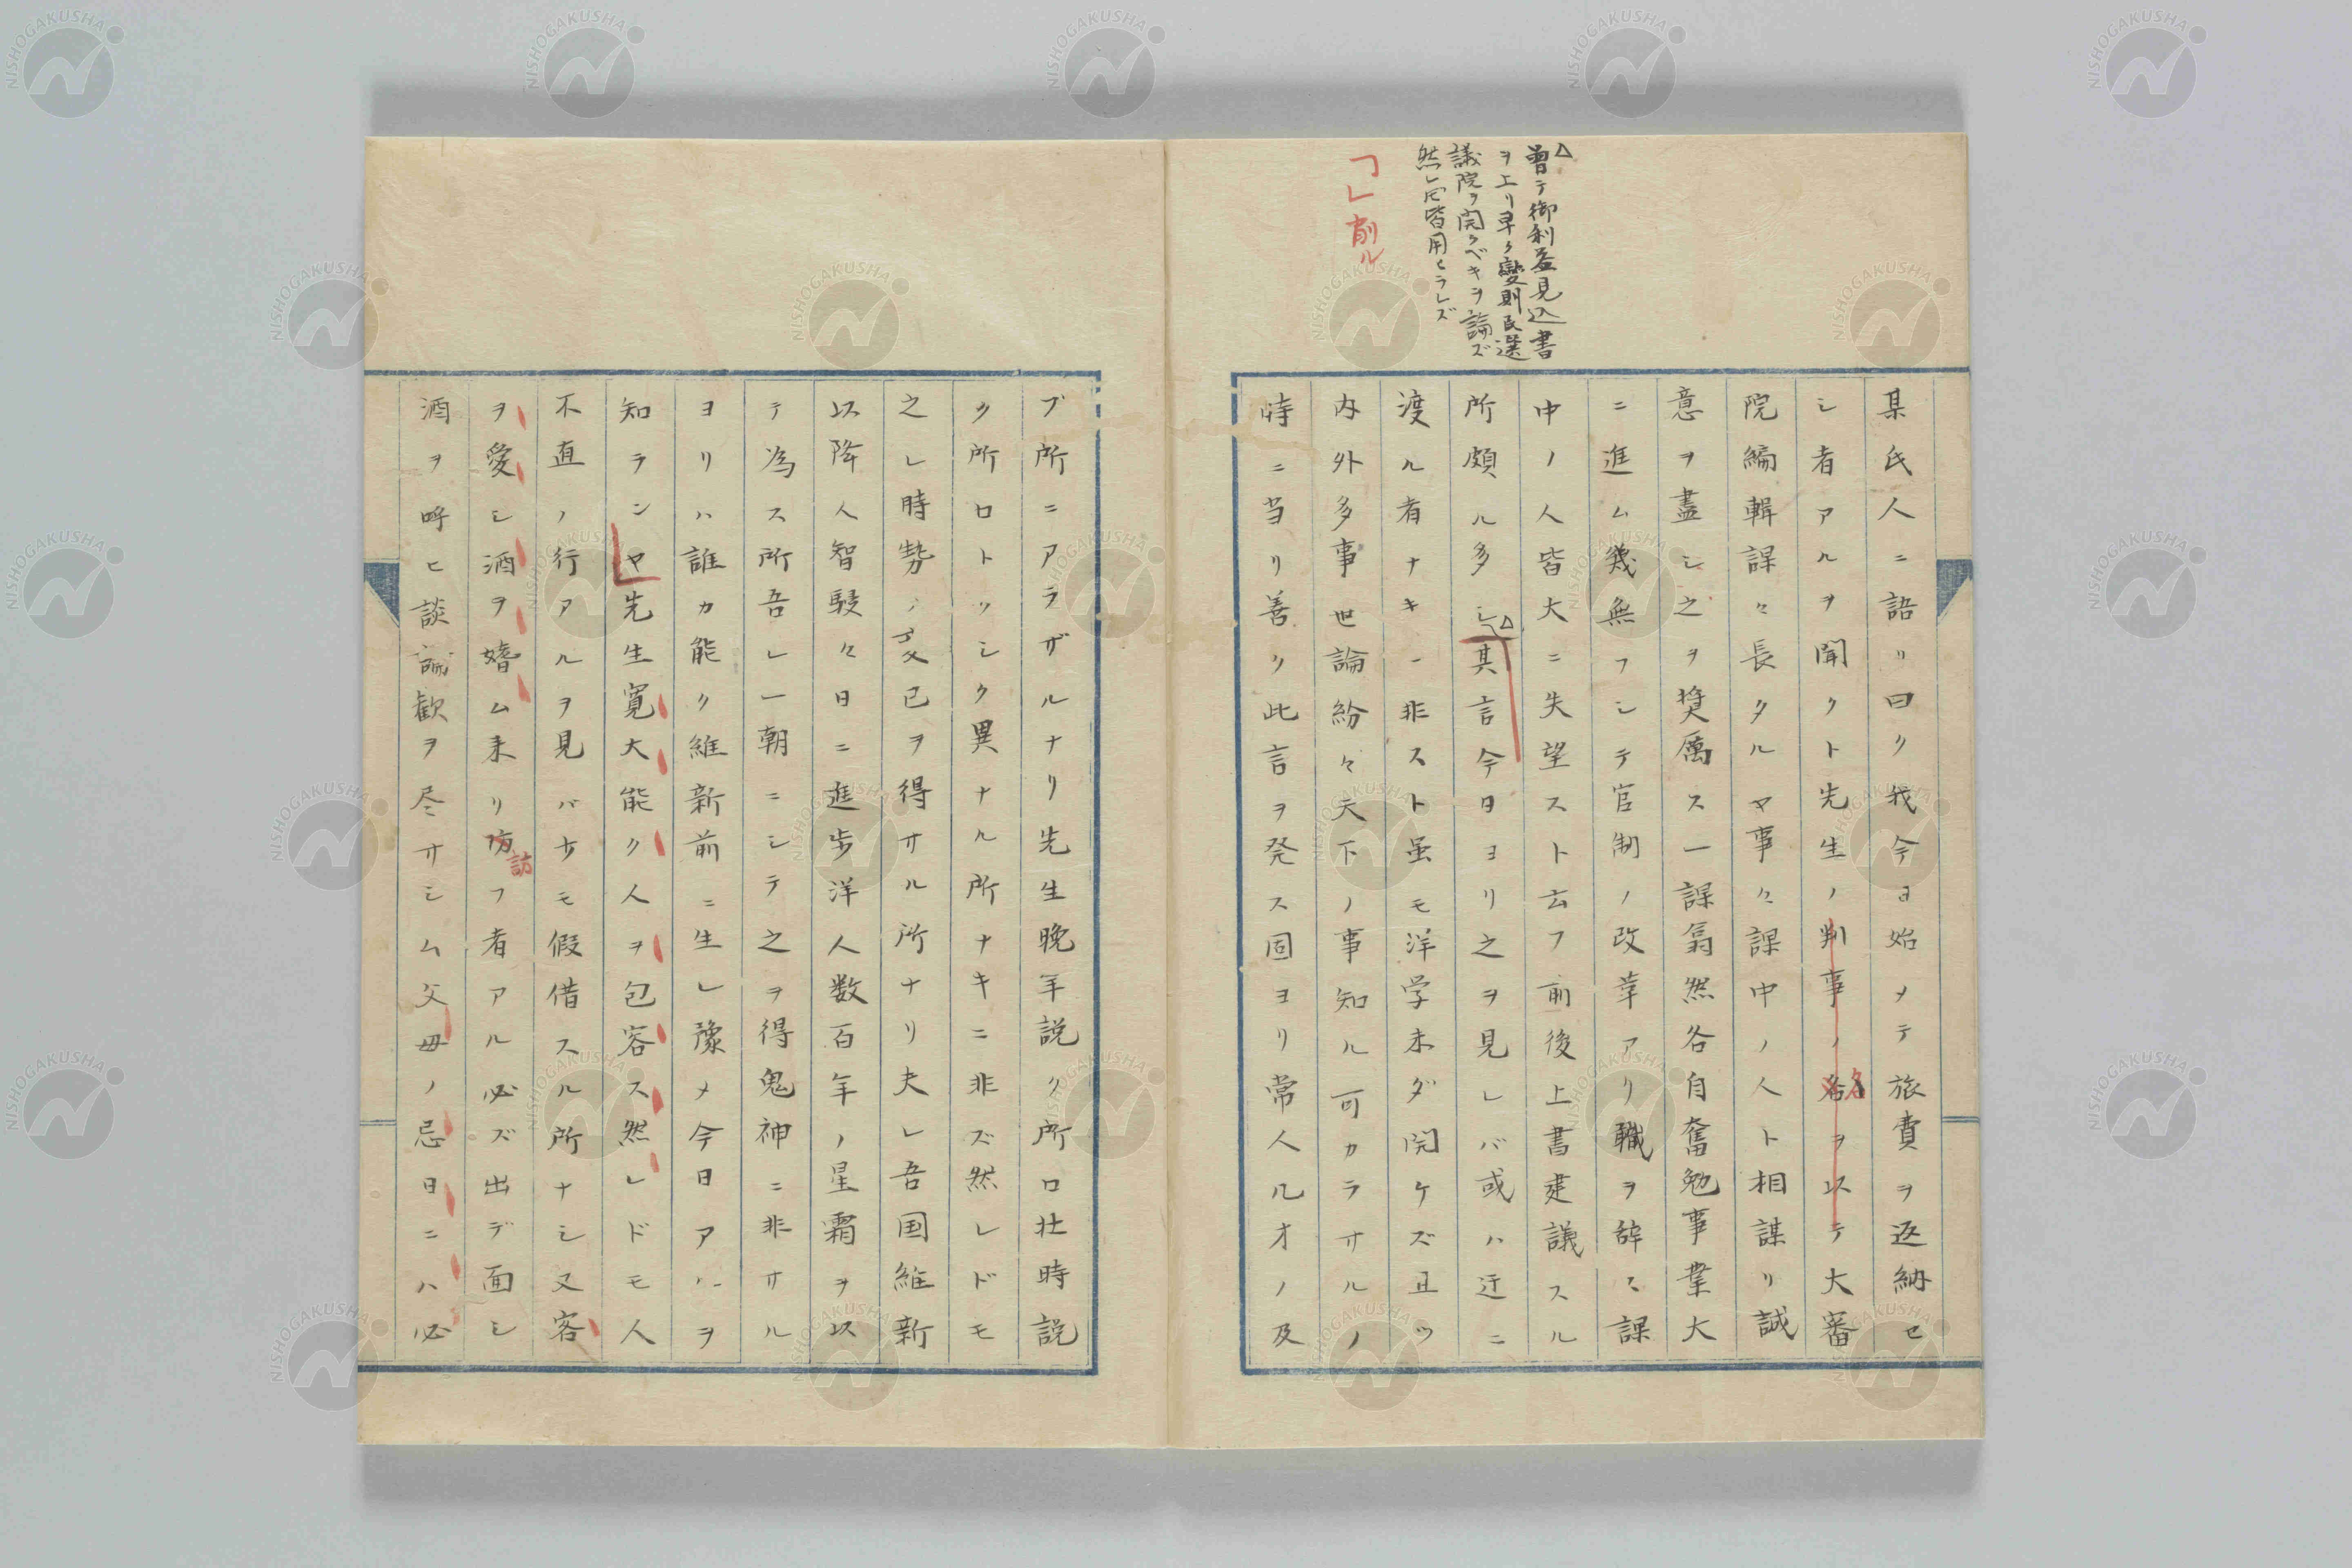 △
曽テ御利益見込書
ヲ上リ早ク變則民選
議院ヲ開クベキヲ論ズ
然レ𪜈皆用ヒラレズ
「」削ル
某氏人ニ語リ曰ク我今日始メテ旅費ヲ返納セ
シ者アルヲ聞クト先生ノ判事ノ名ヲ以テ大審
院編輯課々長タルヤ事々課中ノ人ト相謀リ誠
意ヲ盡シ之ヲ奨厲ス一課翕然各自奮勉事業大
ニ進ム幾無フシテ官制ノ改革アリ職ヲ辞ス課
中ノ人皆大ニ失望スト云フ前後上書建議スル
所頗ル多シ△其言今日ヨリ之ヲ見レバ或ハ迂ニ
渡ル者ナキニ非スト虽モ洋学未ダ開ケズ正ツ
内外多事世論紛々天下ノ事知ル可カラサルノ
時ニ当リ善ク此言ヲ発ス固ヨリ常人凡才ノ及
ブ所ニアラザルナリ先生晩年説ク所ロ壮時説
ク所ロト少シク異ナル所ナキニ非ズ然レドモ
之レ時勢ノ変已ヲ得サル所ナリ夫レ吾国維新
以降人智駸々日ニ進歩洋人数百年ノ星霜ヲ以
テ為ス所吾レ一朝ニシテ之ヲ得鬼神ニ非サル
ヨリハ誰カ能ク維新前ニ生レ豫メ今日アルヲ
知ランヤ先生寛大能ク人ヲ包容ス然レドモ人
不直ノ行アルヲ見バ少モ假借スル所ナシ又客
ヲ愛シ酒ヲ嗜ム来リ訪フ者アル必ズ出デ面シ
酒ヲ呼ヒ談論歓ヲ尽サシム父母ノ忌日ニハ必